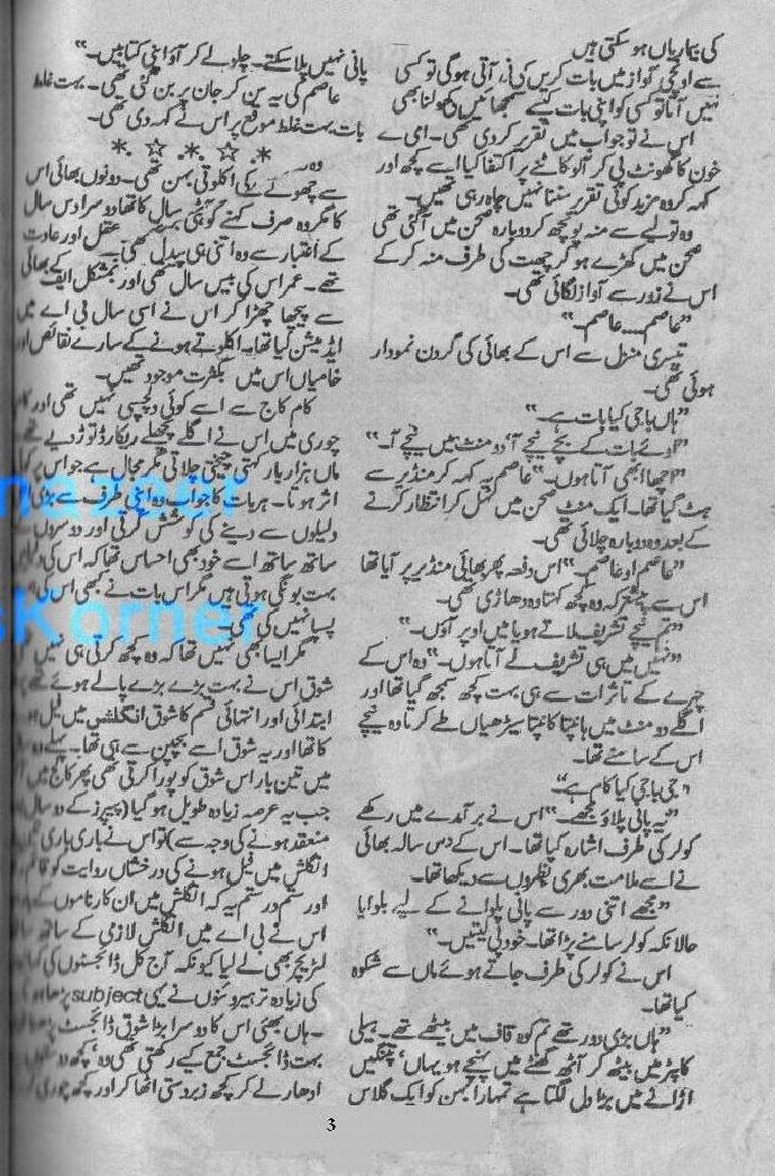 کی بیماریاں ہو سکتی ہیں
سے اونچی آواز میں بات کریں کی نہ آتی ہو گی تو کسی
نہیں آتا تو کسی کو اپنی بات کیسے سمجھائیں گی بولنا بھی
اس نے تو جواب میں تقریر کر دی تھی۔ ای نے
خون کا گھونٹ پی کر آلو کاٹنے پر اکتفا کیا اسے کچھ اور
کہہ کر وہ مزید کوئی تقریر سننا نہیں چاہ رہی تھیں۔
وہ تولیے سے منہ پونچھ کر دوبارہ صحن میں آ گئی تھی
صحن میں کھڑے ہو کر چھت کی طرف منہ کر کے
اس نے زور سے آواز لگائی تھی۔
"عاصم۔۔۔ عاصم۔"
تیسری منزل سے اس کے بھائی کی گردن نمودار
ہوئی تھی۔
"ہاں باجی کیا بات ہے۔"
"اوئے بات کے بچے نیچے آ' دو منٹ میں نیچے آ۔"
"اچھا ابھی آتا ہوں۔" عاصم یہ کہہ کر منڈیر سے
ہٹ گیا تھا۔ ایک منٹ صحن میں ٹہل کر انتظار کرنے
کے بعد وہ دوبارہ چلائی تھی۔
"عاصم او عاصم۔" اس دفعہ پھر بھائی منڈیر پر آیا تھا
اس سے پیشتر کہ وہ کچھ کہتا وہ دھاڑی تھی۔
"تم نیچے تشریف لاتے ہو یا میں اوپر آؤں۔"
"نہیں میں ہی تشریف لے آتا ہوں۔" وہ اس کے
چہرے کے تاثرات سے ہی بہت کچھ سمجھ گیا تھا اور
اگلے دو منٹ میں ہانپتا کانپتا سیڑھیاں طے کرتا وہ نیچے
اس کے سامنے تھا۔
"جی باجی کیا کام ہے۔"
"یہ پانی پلاؤ مجھے۔" اس نے برآمدے میں رکھے
کولر کی طرف اشارہ کیا تھا۔ اس کے دس سالہ بھائی
نے اسے ملامت بھری نظروں سے دیکھا تھا۔
"مجھے اتنی دور سے پانی پلوانے کے لیے بلوایا
حالانکہ کولر سامنے پڑا تھا۔ خود پی لیتیں۔"
اس نے کولر کی طرف جاتے ہوئے ماں سے شکوہ
کیا تھا۔
"ہاں بڑی دور تھے تم کوہ قاف میں بیٹھے تھے۔ ہیلی
کاپٹر میں بیٹھ کر آٹھ گھنٹے میں پہنچے ہو یہاں' پتنگیں
اڑانے میں بڑا دل لگتا ہے تمہارا بہن کو ایک گلاس
پانی نہیں پلا سکتے۔ چلو لے کر آؤ اپنی کتابیں۔"
عاصم کی یہ سن کر جان پر بن گئی تھی۔ بہت غلط
بات بہت غلط موقع پر اس نے کہہ دی تھی۔
*.☆.*.☆.*
وہ
سے چھوٹے کی اکلوتی بہن تھی۔ دونوں بھائی اس
کا نمبر وہ صرف کہنے کو ہی سال کا تھا دوسرا دس سال
کے اعتبار سے وہ اتنی ہی پیدل تھی عقل اور عادت
تھے۔ عمر اس کی بیس سال تھی اور بمشکل ایف کے بھائی
سے پیچھا چھڑا کر اس نے اسی سال بی اے میں
ایڈمیشن لیا تھا۔ اکلوتے ہونے کے سارے نقائص اور
خامیاں اس میں بکثرت موجود تھیں۔
کام کاج سے اسے کوئی دلچسپی نہیں تھی اور کام
چوری میں اس نے اگلے پچھلے ریکارڈ توڑ دیے تھے
ماں ہزار بار کہتی چیختی چلاتی مگر مجال ہے جو اس پر کوئی
اثر ہوتا۔ ہر بات کا جواب وہ اپنی طرف سے بڑی
دلیلوں سے دینے کی کوشش کرتی اور دوسروں
ساتھ ساتھ اسے خود بھی احساس تھا کہ اس کی دلیلیں
بہت بونگی ہوتی ہیں مگر اس بات نے کبھی اس کی
پسپا نہیں کی تھی۔
مگر ایسا بھی نہیں تھا کہ وہ کچھ کرتی ہی نہیں
شوق اس نے بہت بڑے بڑے پالے ہوئے تھے
ابتدائی اور انتہائی قسم کا شوق انگلش میں فیل ہونے
کا تھا اور یہ شوق اسے بچپن سے ہی تھا۔ پہلے وہ
میں تین بار اس شوق کو پورا کرتی تھی پھر کالج میں
جب یہ عرصہ زیادہ طویل ہو گیا (پیپرز کے دو سال
منعقد ہونے کی وجہ سے) تو اس نے باری باری
انگلش میں فیل ہونے کی درخشاں روایت کو قائم
اور ستم در ستم یہ کہ انگلش میں ان کارناموں کے
اس نے بی اے میں انگلش لازمی کے ساتھ
لٹریچر بھی لے لیا کیونکہ آج کل ڈائجسٹوں کی
کی زیادہ تر ہیروئنوں نے یہی subject پڑھا
۔ہاں بھئی اس کا دوسرا بڑا شوق ڈائجسٹ پڑھنا
بہت ڈائجسٹ جمع کیے رکھتی تھی وہ' کچھ
ادھار لے کر کچھ زبردستی اٹھا کر اور کچھ چوری
nazeer
sKorner
3